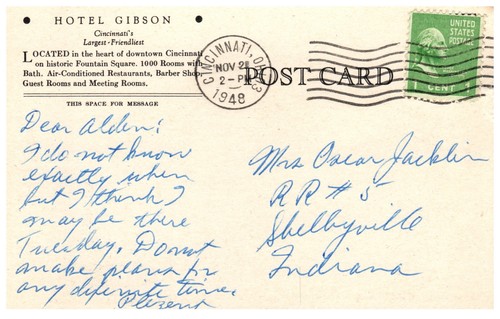 HOTEL GIBSON
Cincinnati's
Largest-Friendliest
LOCATED in the heart of downtown Cincinnati
on historic Fountain Square. 1000 Rooms with
Bath. Air-Conditioned Restaurants, Barber Shop,
Guest Rooms and Meeting Rooms.
THIS SPACE FOR MESSAGE
POST CARD
CINCINNATI, OHIO
NOV 2
2-PM
1948
UNITED
STATES
POSTAGE
1 CENT 1
Dear Alden:
I do not know
exactly when
but I think I
may be there
Tuesday. Do not
make plans for
any definite time.
Mrs Oscar Jacklin
RR # 5
Shelbyville
Indiana